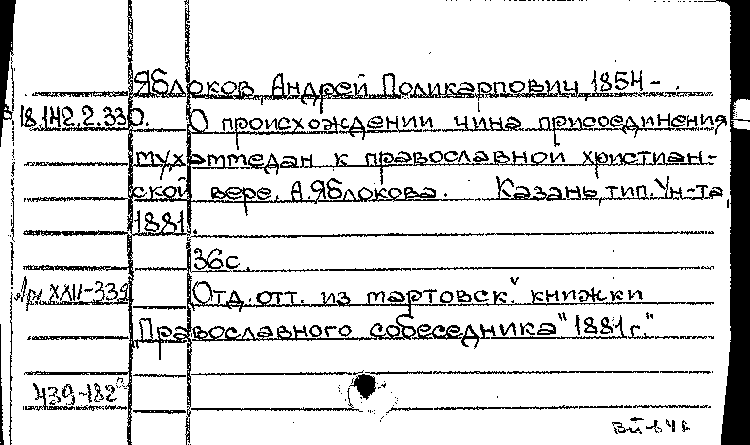 Яблоков, Андрей Поликарпович, 1854- .
18.142.2.330. О происхождении чина присоединения
мухаммедан к православной христиан-
ской вере. А. Яблокова. Казань, тип. Ун-та,
1881.
36с.
XXII-339 Отд. отт. из мартовск. книжки
"Православного собеседника" 1881г."
439-182